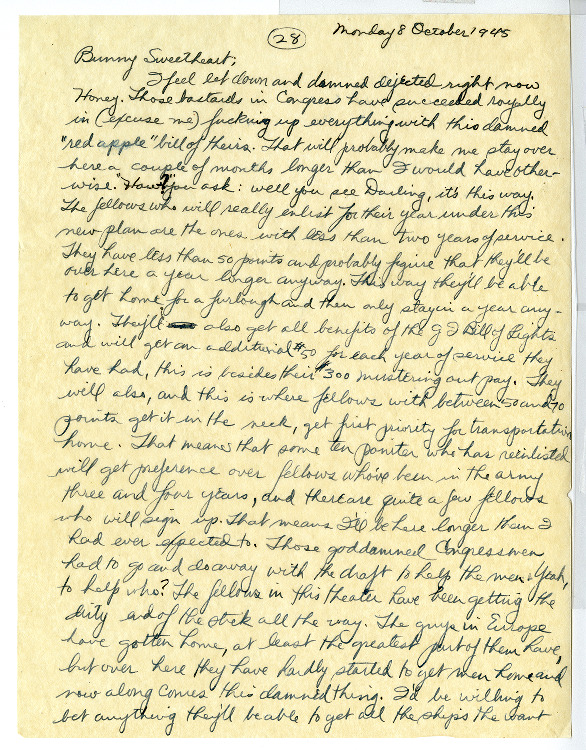 28
Monday 8 October 1945
Bunny Sweetheart;
I feel let down and damned dejected right now
Honey. Those bastards in Congress have succeeded royally
in (excuse me) fucking up everything with this damned
"red apple" bill of theirs. That will probably make me stay over
here a couple of months longer than I would have other-
wise. "How?" you ask: well you see Darling, it's this way.
The fellows who will really enlist for their year under this
new plan are the ones with less than two years of service.
They have less than 50 points and probably figure that they'll be
over here a year longer anyway. This way they'll be able
to get home for a furlough and then only stay in a year any-
way. They'll also get all benefits of the G I Bill of Rights
and will get an additional $50 for each year of service they
have had, this is besides their $300 mustering out pay. They
will also, and this is where fellows with between 50 and 70
points get it in the neck, get first priority for transportation
home. That means that some ten pointer who has reinlisted
will get preference over fellows who've been in the army
three and four years, and there are quite a few fellows
who will sign up. That means I'll be here longer than I
had ever expected to. Those goddamned Congressmen
had to go and do away with the draft to help the men. Yeah,
to help who? The fellows in this theater have been getting the
dirty end of the stick all the way. The guys in Europe
have gotten home, at least the greatest part of them have,
but over here they have hardly started to get men home and
now along comes this damned thing. I'd be willing to
bet anything they'll be able to get all the ships the want